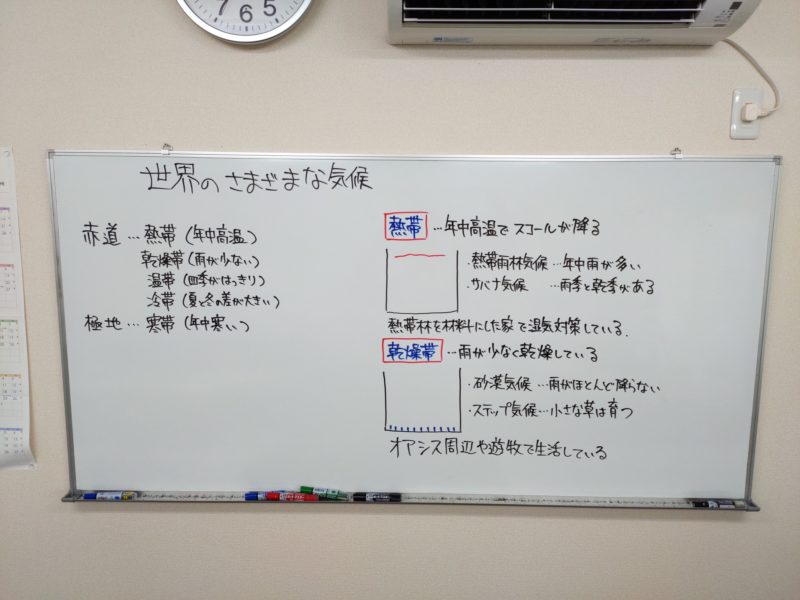 7 6 5
世界のさまざまな気候
赤道…熱帯(年中高温)
乾燥帯(雨が少ない)
温帯(四季がはっきり)
冷帯(夏と冬の差が大きい)
極地…寒帯(年中寒い)
熱帯…年中高温でスコールが降る
・熱帯雨林気候…年中雨が多い
・サバナ気候…雨季と乾季がある
熱帯林を材料にした家で湿気対策している.
乾燥帯…雨が少なく乾燥している
・砂漠気候…雨がほとんど降らない
・ステップ気候…小さな草は育つ
オアシス周辺や遊牧で生活している